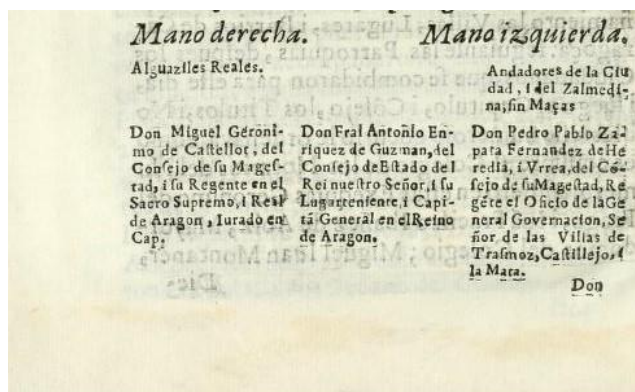 Mano derecha.
Mano izquierda.
Alguaziles Reales.
Andadores de la Ciu
dad, i del Zalmedi-
na, sin Maças
Don Miguel Geroni-
mo de Castellot, del
Consejo de su Mages-
tad, i su Regente en el
Sacro Supremo, i Real
de Aragon, Iurado en
Cap.
Don Frai Antonio En-
riquez de Guzman, del
Consejo de Estado del
Rei nuestro Señor, i su
Lugarteniente, i Capi-
tã General en el Reino
de Aragon.
Don Pedro Pablo Za-
pata Fernandez de He
redia, i Vrrea, del Cõ-
sejo de su Magestad, Re
gẽte el Oficio de la Ge
neral Governacion, Se
ñor de las Villas de
Trasmoz, Castillejo, i
la Mata.
Don